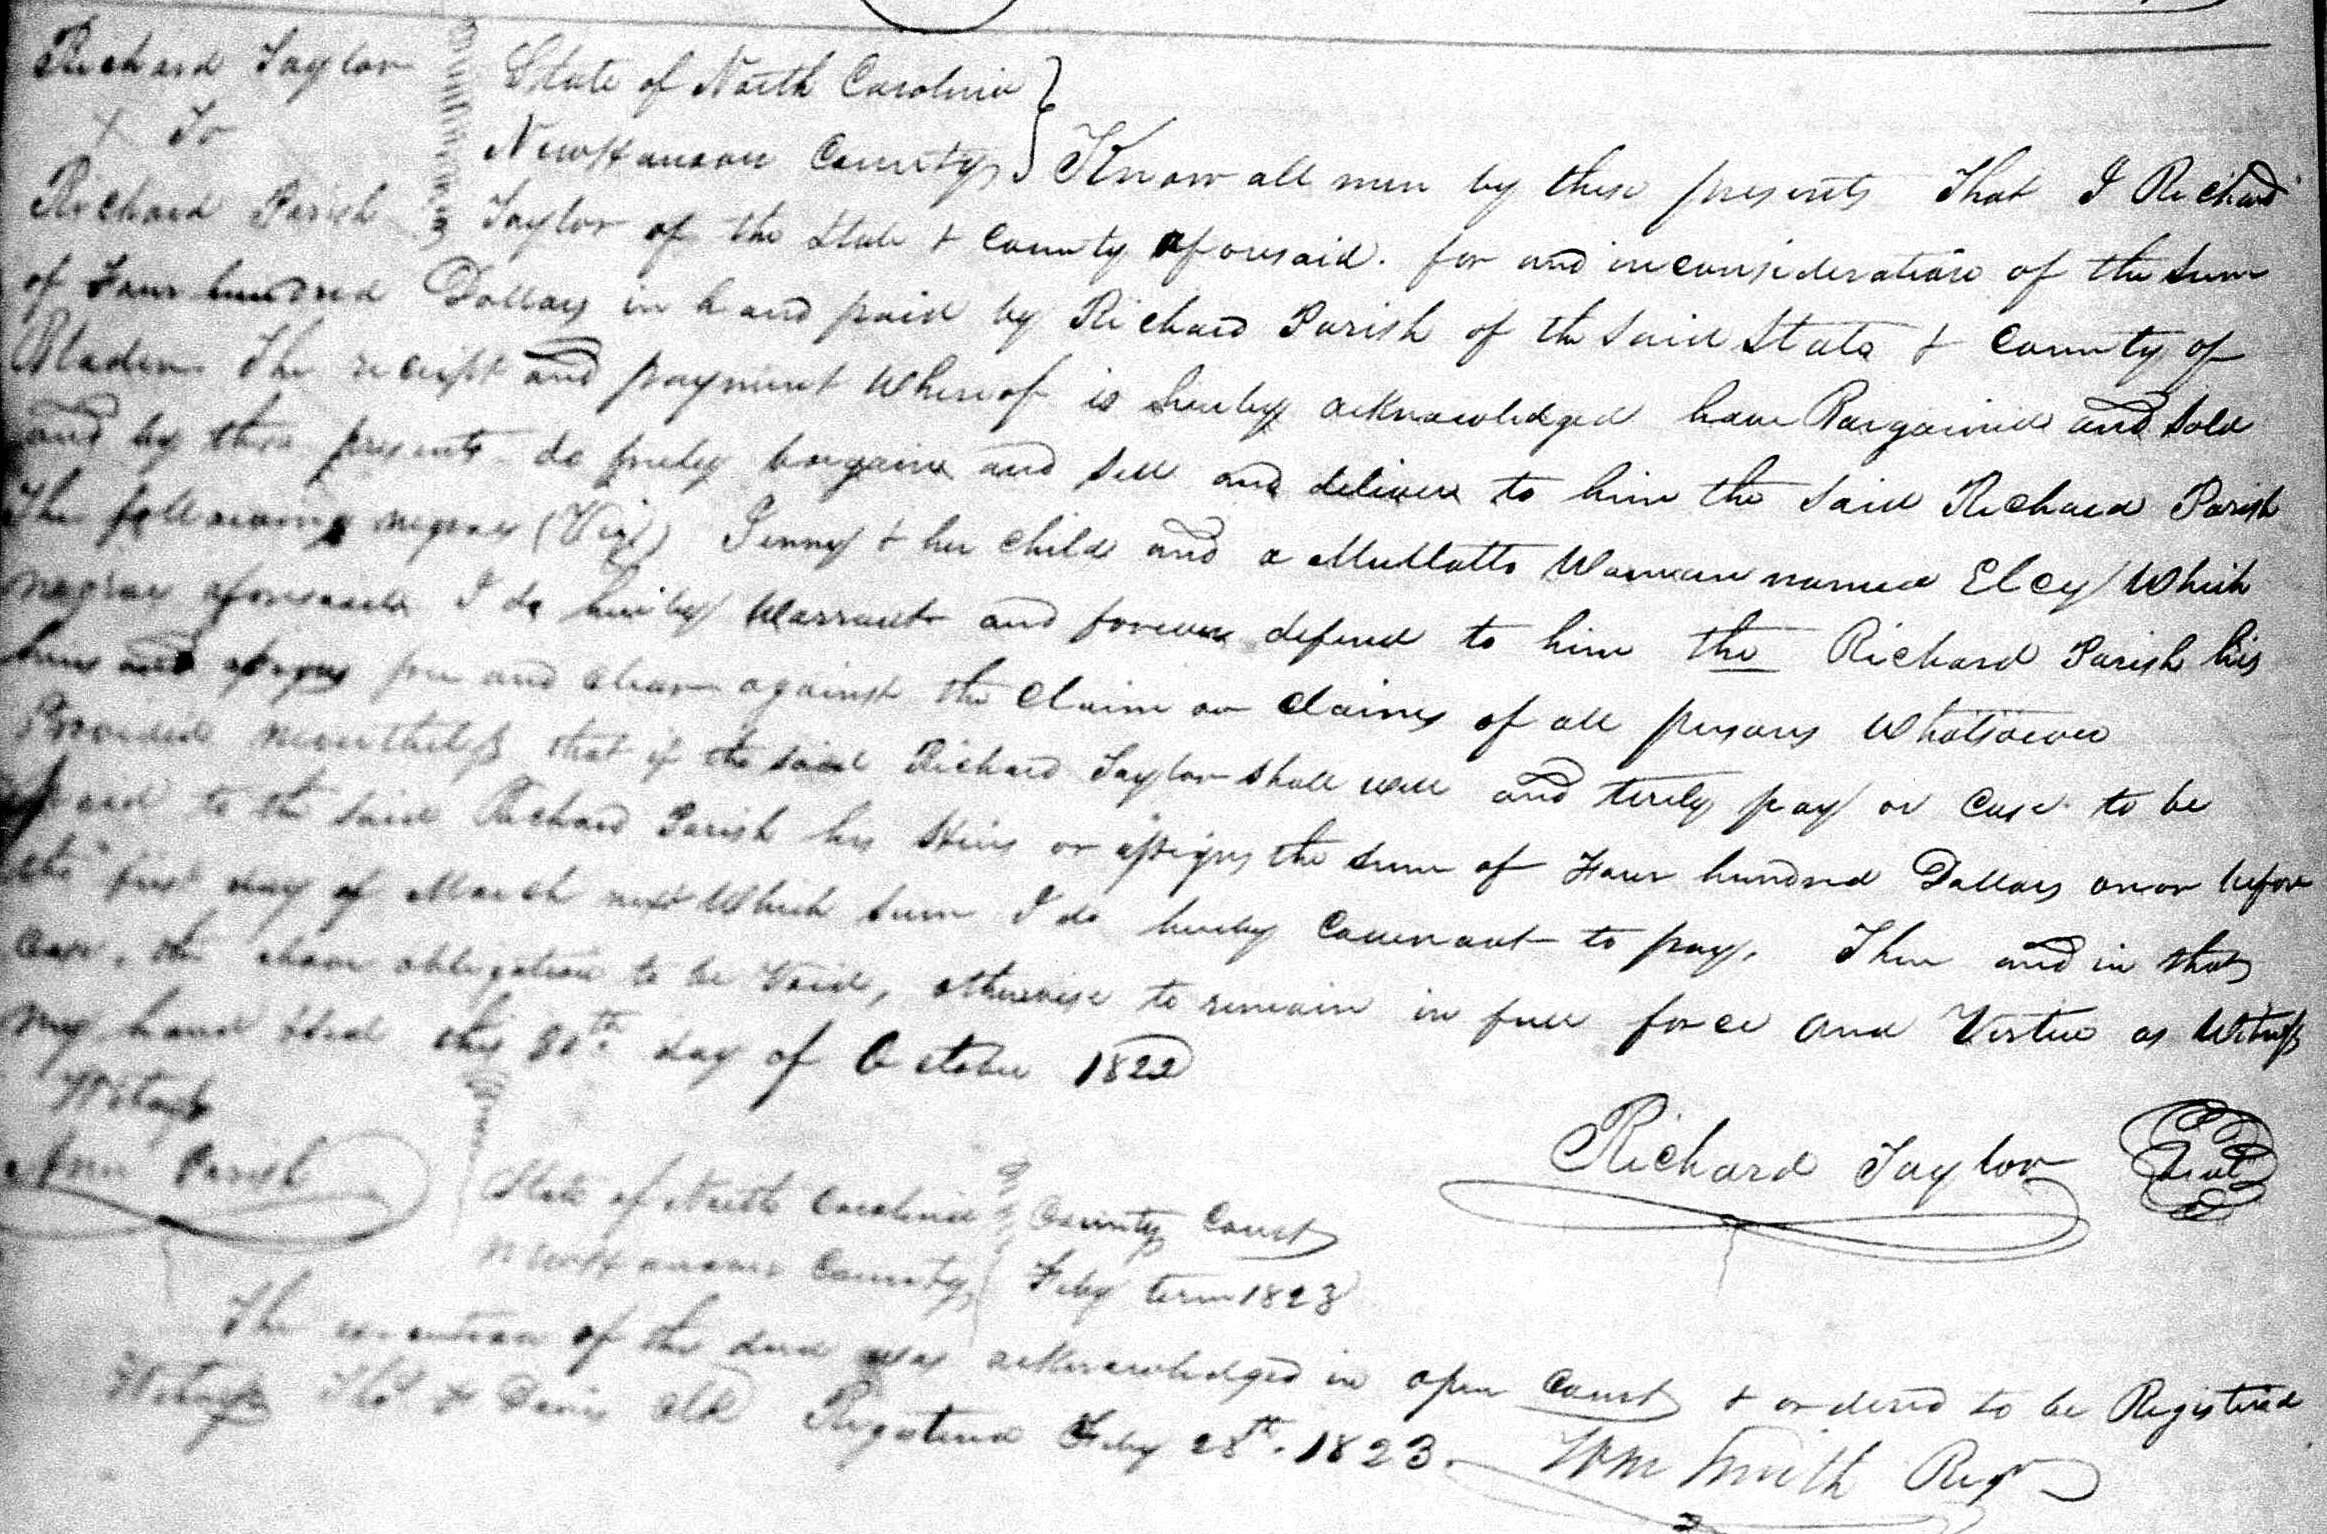 Richard Taylor
X To
Richard Parish
State of North Carolina
New Hanover County
Know all men by these presents That I Richard
Taylor of the State & County aforesaid. for and in consideration of the sum
of Four hundred Dollars in hand paid by Richard Parish of the said State & County of
Bladen The receipt and payment Whereof is hereby acknowledged have Bargained and sold
and by these presents do freely bargain and sell and deliver to him the said Richard Parish
The following negroes (Viz) Jenny & her child and a Mullatto Woman named Elcy Which
negroes aforesaid I do hereby Warrant and forever defend to him the Richard Parish his
heirs and assigns free and clear against the Claim or Claims of all persons Whatsoever
Provided nevertheless that if the said Richard Taylor shall well and turly pay or Case to be
paid to the said Richard Parish his Heirs or assigns the sum of Four hundred Dollars on or before
the first day of March next Which sum I do hereby Covenant to pay, Then and in that
Case, the above obligation to be Void, otherwise to remain in full force and Virtue as Witness
my hand & seal this 30th day of October 1822
Witness
Ann Parish
Richard Taylor Seal
State of North Carolina County Court
New Hanover County Feby term 1823
The execution of the deed was acknowledged in open Court & ordered to be Registered
Witness Thos F Davis Clk Registered Feby 28th. 1823. Wm Smith Regr